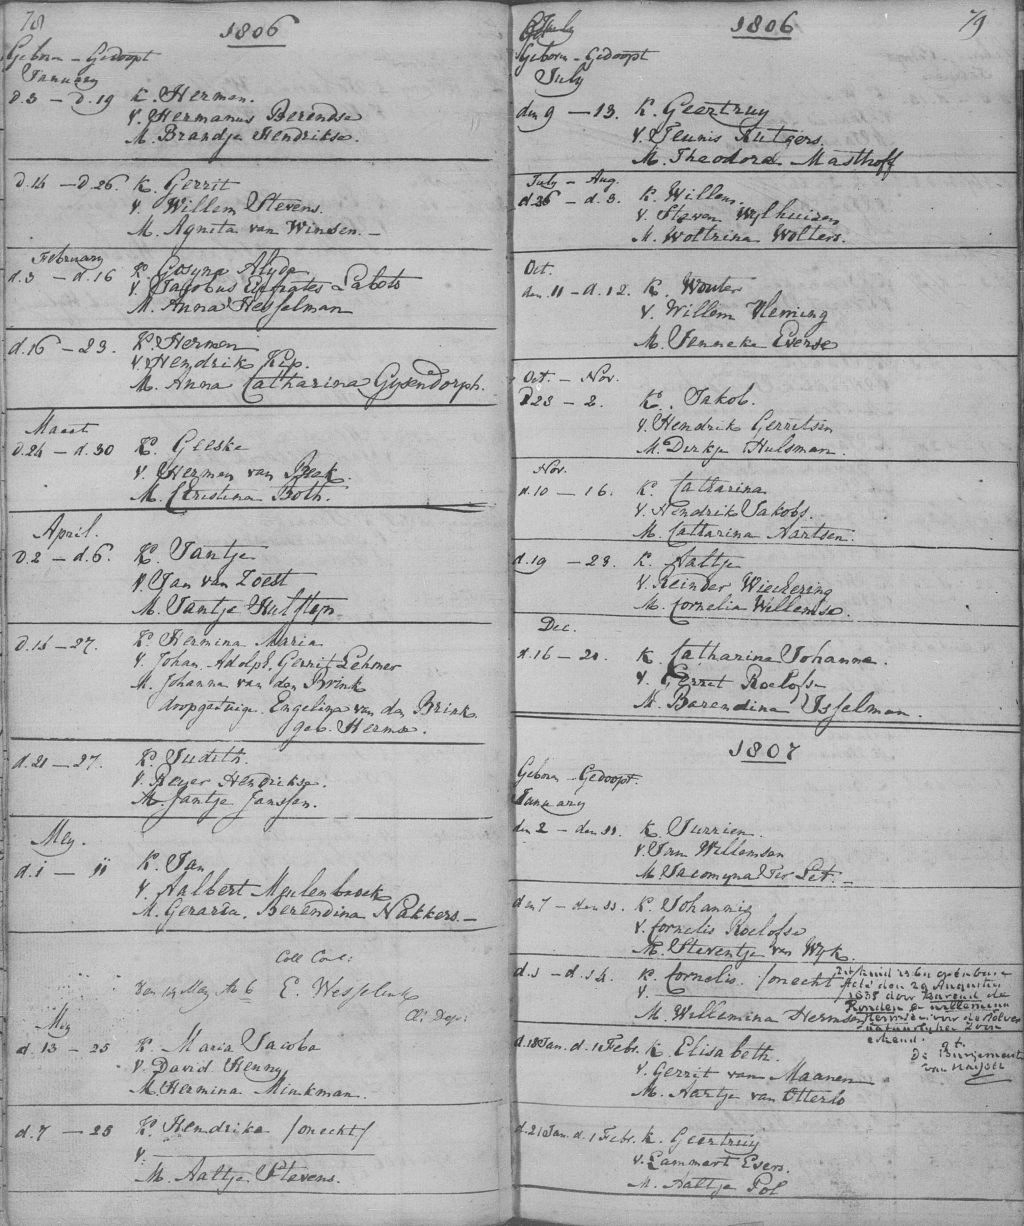 78
1806
Geboren - Gedoopt
January
d.3 - d.19 K. Herman.
V. Hermanus Berendse
M. Brandje Hendrikse.
d.14 - d.26. K. Gerrit
V. Willem Stevens.
M. Agnita van Winsen. -
February
d.3 - d.16 K. Gosyna Alyda
V. Jacobus Labots
M. Anna Hesselman
d.16 - 23. K. Herman
V. Hendrik Kip.
M. Anna Catharina Gysendorph.
Maart
d.24 - d.30 K. Geeske
V. Herman van Beek.
M. Christina Both.
April.
d.2 - d.6. K. Jantje
V. Jan van Zoest
M. Jantje Hulstyn
d.14 - 27. K. Hermina Maria
V. Johan Adolph Gerrit Lehmer
M. Johanna van den Brink
doopgetuige. Engelina van den Brink
geb. Hermse.
d.21 - 27. K. Judith.
V. Reyer Hendrikse.
M. Jantje Janssen.
Mey.
d.1 - 11 K. Jan
V. Aalbert Meulenbroek
M. Gerarda Berendina Nakkers. -
Coll Conc:
den 14 May Ao 6 E. Wesselink
Cl. Dep:
Mey
d.13 - 25 K. Maria Jacoba
V. David Henny
M. Hermina Minkman.
d.7 - 25 K. Hendrika /onecht/
V.
M. Aaltje Stevens.
79
1806
July
Geboren - Gedoopt
July
den 9 - 13. K. Geertruy
V. Teunis Rutgers.
M. Theodora Masthoff
July - Aug.
d.26 - d.3. K. Willem.
V. Steven Wylhuizen
M. Woltrina Wolters.
Oct.
den 11 - d.12. K. Wouter
V. Willem Vleming
M. Jenneke Everse
Oct. - Nov.
d.23 - 2. K. Jakob.
V. Hendrik Gerritsen
M. Dirkje Hulsman.
Nov.
d.10 - 16. K. Catharina
V. Hendrik Jakobs.
M. Catharina Aartsen.
d.19 - 23. K. Aaltje
V. Reinder Wiechering
M. Cornelia Willemse.
Dec.
d.16 - 21. K. Catharina Johanna.
V. Gerrit Roelofse
M. Barendina Ysselman.
1807
Geboren - Gedoopt.
January
den 2 - den 11. K. Jurrien.
V. Jan Willemsen
M. Jacomyna Ter Pet. -
den 7 - den 11. K. Johannis
V. Cornelis Roelofse
M. Steventje van Wyk.
d.3 - d.14. K. Cornelis. /onecht/
V.
M. Willemina Hermsen
Dit kind is bij openbare
Acte den 29 Augustus
1838 door Barend de
Ronden en Willemina
Hermsen voor derzelver
natuurlijke Zoon
erkend.
De Burgemeester
d.18 Jan. d.1 Febr. K. Elisabeth.
V. Gerrit van Maanen
M. Aartje van Otterlo
d.21 Jan. d.1 Febr. K. Geertruy
V. Lammert Evers.
M. Aaltje Pol